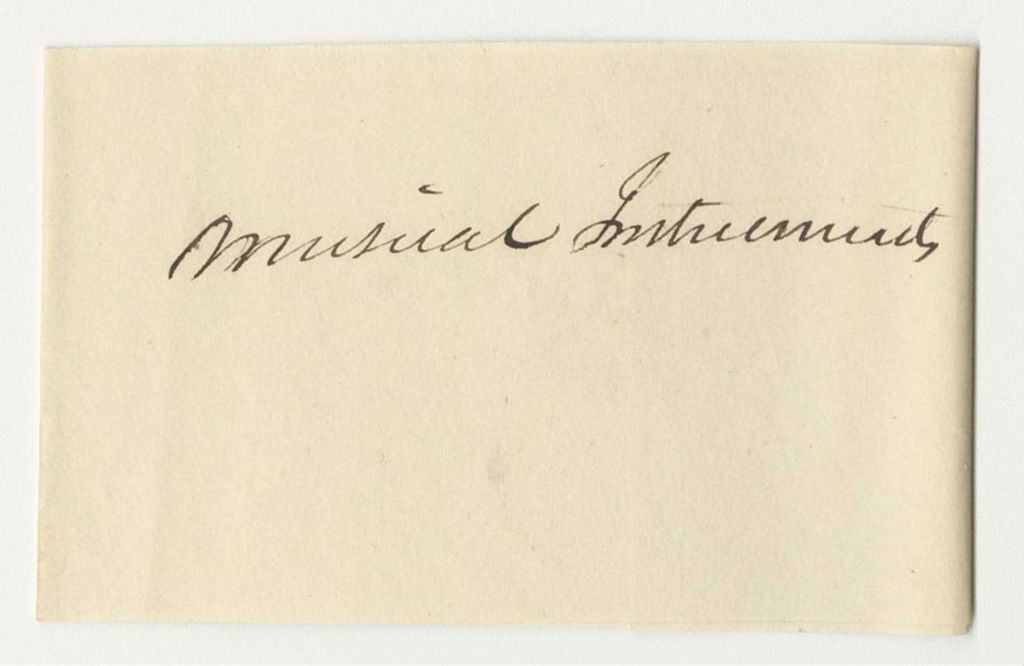 Musical Instruments